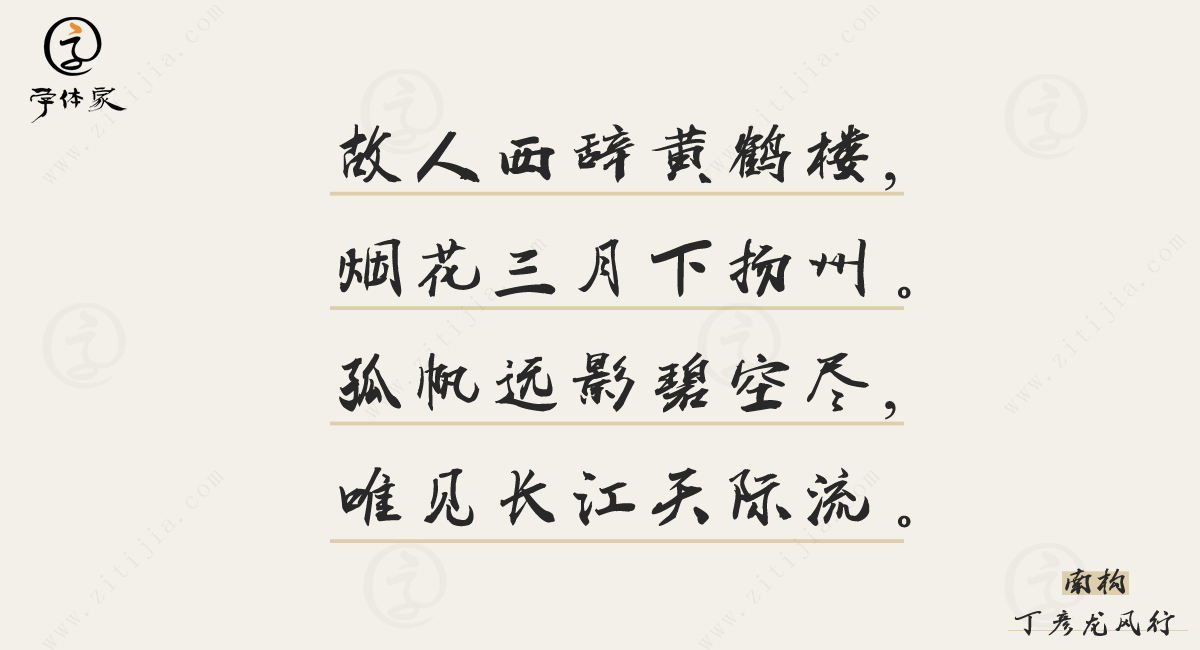 字体家
故人西辞黄鹤楼，
烟花三月下扬州。
孤帆远影碧空尽，
唯见长江天际流。
南构
丁彦龙风行
www.zitijia.com